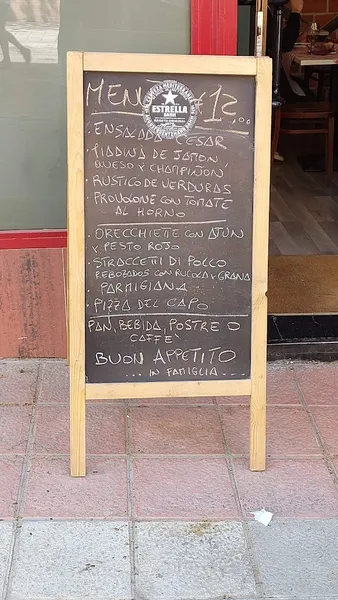 MENU #12...
CERVEZA MEDITERRÁNEA
ESTRELLA
DAMM
· ENSALADA CESAR
· PIADINA DE JAMON,
QUESO Y CHAMPIÑON
· RUSTICO DE VERDURAS
· PROVOLONE CON TOMATE
AL HORNO
· ORECCHIETTE CON ATUN
Y PESTO ROJO
· STRACCETTI DI POLLO
REBOZADOS CON RUCOLA Y GRANA
PARMIGIANA
· PIZZA DEL CAPO
PAN, BEBIDA, POSTRE O
CAFFE'
BUON APPETITO
... IN FAMIGLIA...